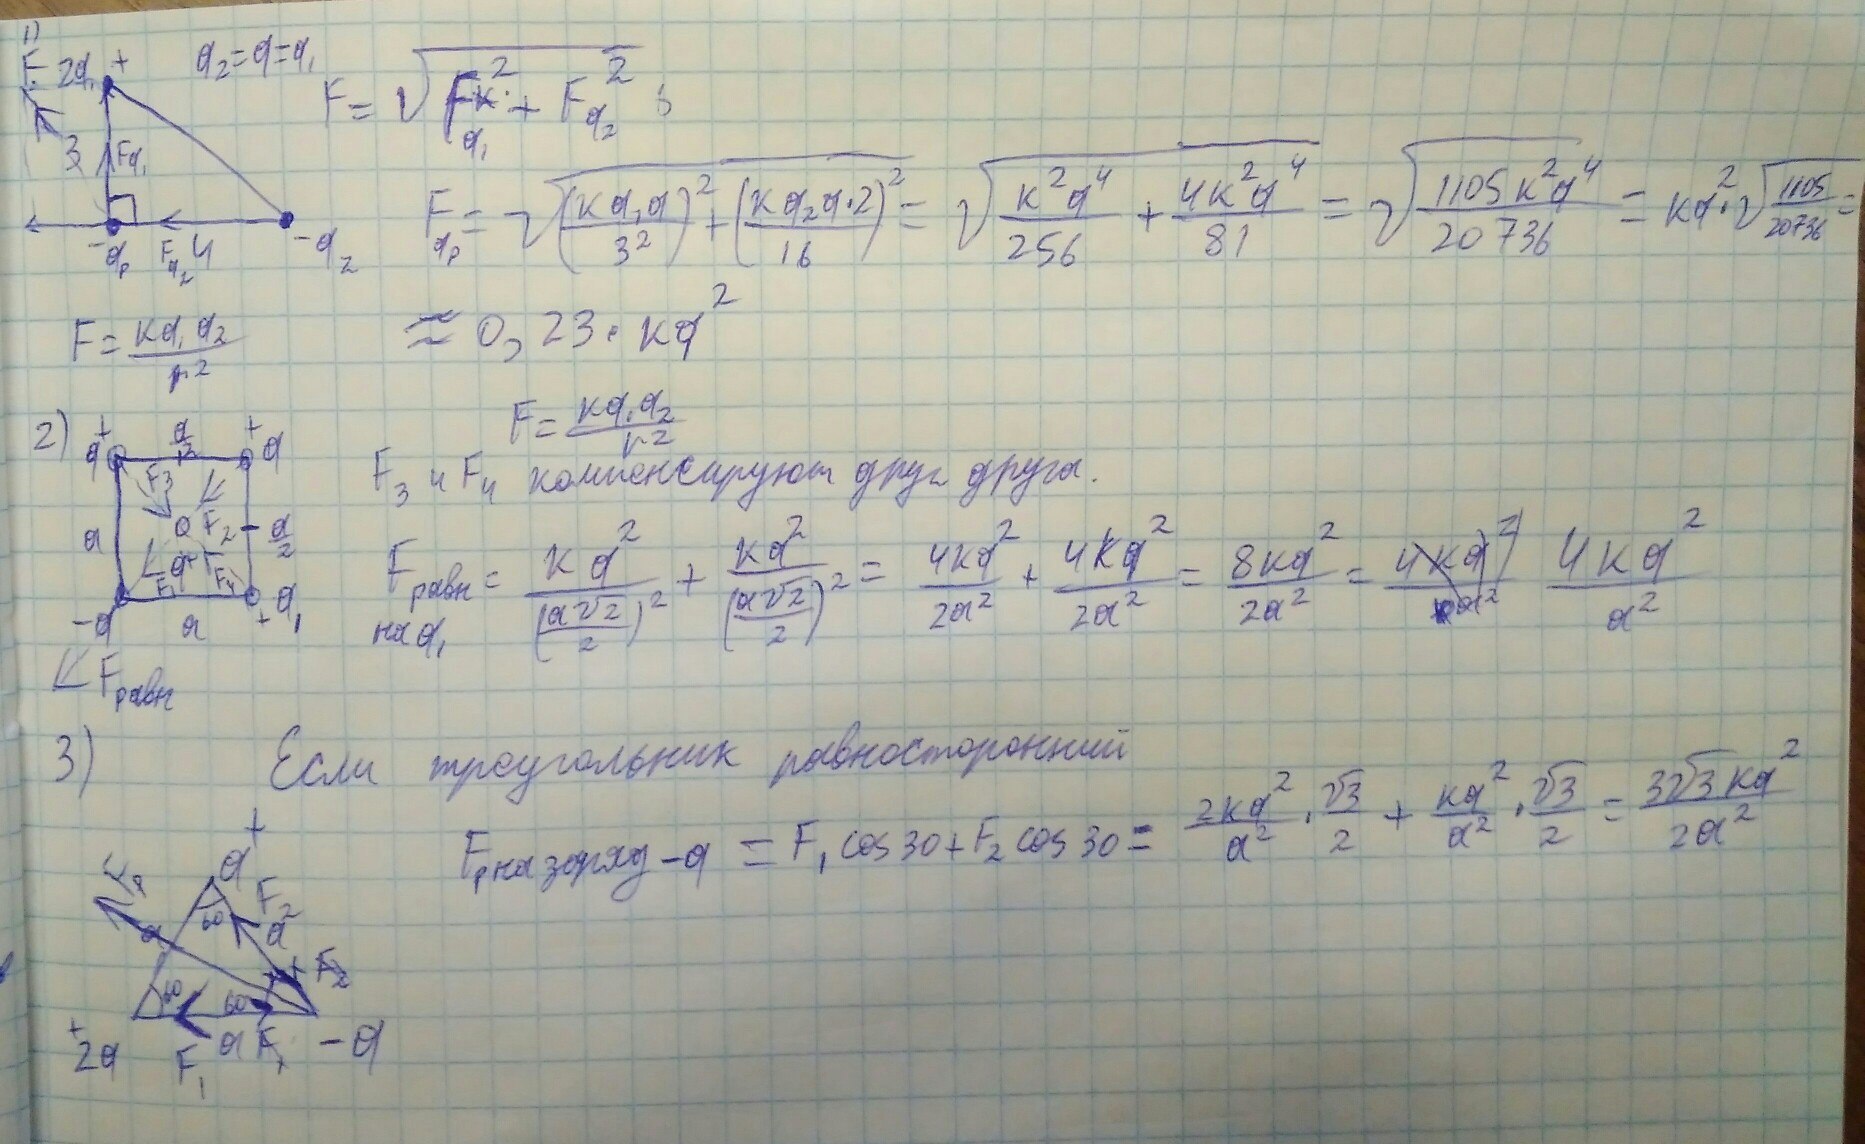 1)
F 2q₁ + q₂=q=q₁
F = √(F_{q₁}² + F_{q₂}²)
3 F_{q₁}
F_{qр} = √((kq₁q/3²)² + (kq₂q·2/16)²) = √(k²q⁴/256 + 4k²q⁴/81) = √(1105k²q⁴/20736) = kq²·√(1105/20736) =
-qр F_{q₂} 4 -q₂
F = kq₁q₂/r² ≈ 0,23·kq²
2) + q a/2 + q F = kq₁q₂/r²
F₃ и F₄ компенсируют друг друга.
F₃ F₂ a a/2
q⁺ F₁ F₄
Fравн на q₁ = kq²/(a√2/2)² + kq²/(a√2/2)² = 4kq²/2a² + 4kq²/2a² = 8kq²/2a² = 4kq²/a²
-q a + q₁
Fравн
3) Если треугольник равносторонний
Fр на заряд -q = F₁ cos 30 + F₂ cos 30 = 2kq²/a² · √3/2 + kq²/a² · √3/2 = 3√3kq²/2a²
+
q
Fр 60 F₂
a a
60 60 F₂
+2q F₁ a F₁ -q